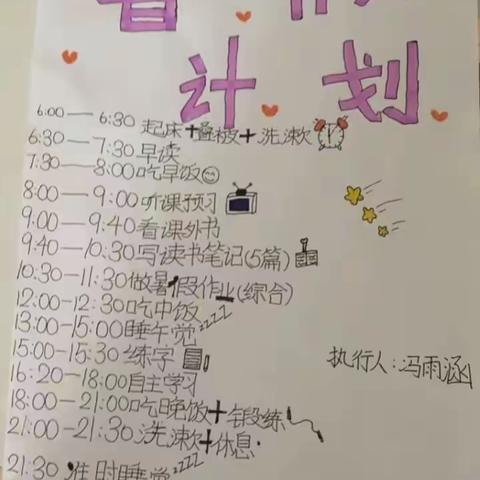 暑假
计划
6:00—6:30起床+叠被+洗漱
6:30—7:30早读
7:30—8:00吃早饭
8:00—9:00听课预习
9:00—9:40看课外书
9:40—10:30写读书笔记(5篇)
10:30-11:30做暑假作业(综合)
12:00-12:30吃中饭
13:00-15:00睡午觉zzz
15:00-15:30练字
执行人:冯雨涵
16:20-18:00自主学习
18:00-21:00吃晚饭+锻练
21:00-21:30洗漱+休息
21:30准时睡觉zzz